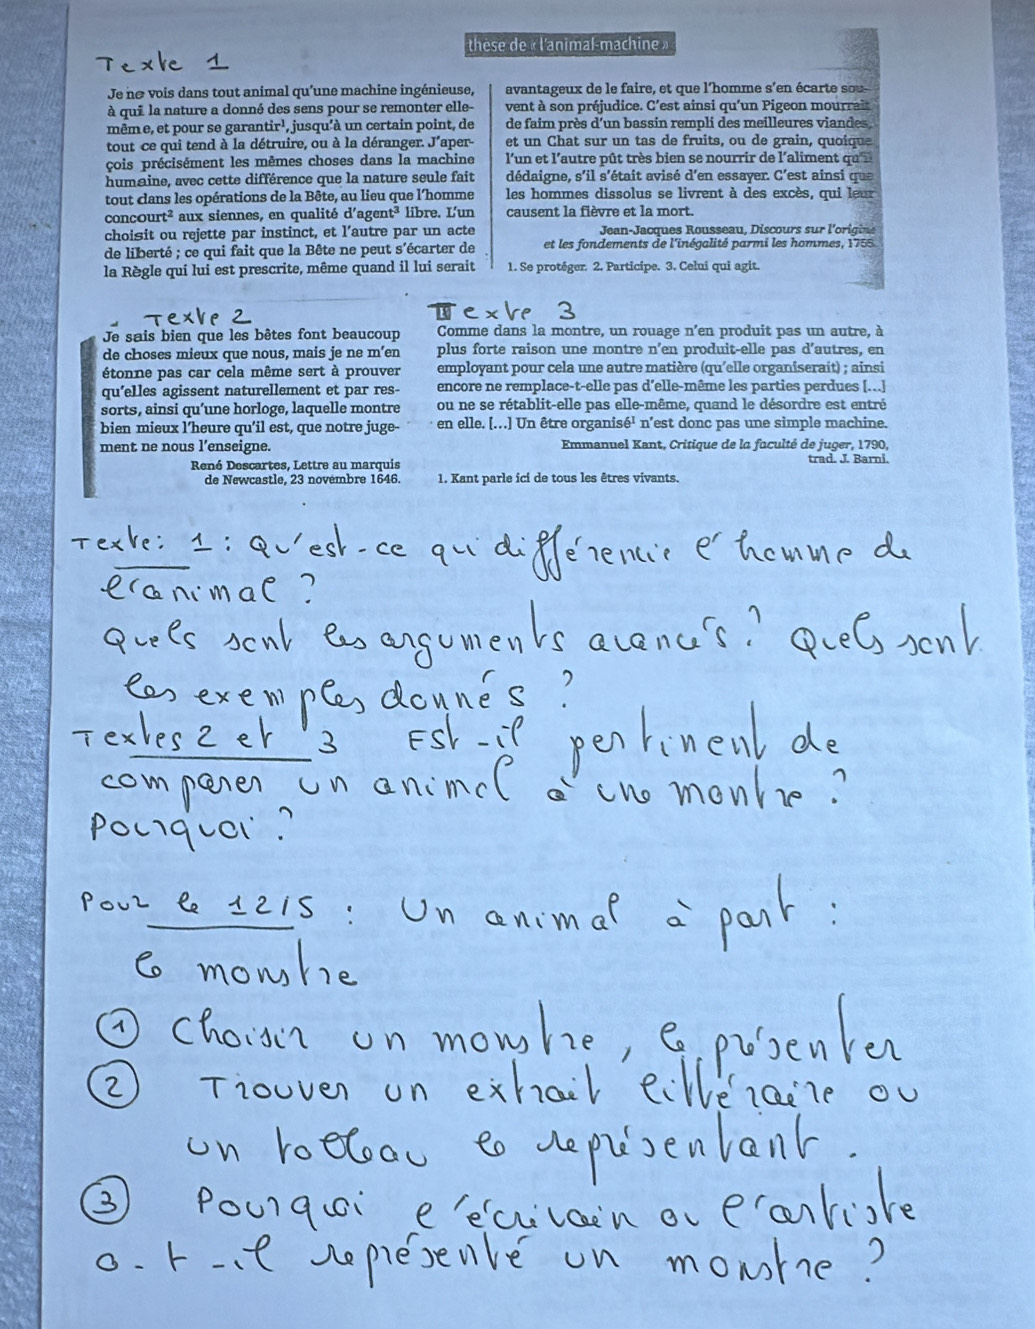 thèse de « l'animal-machine »
Texte 1
Je ne vois dans tout animal qu'une machine ingénieuse,
à qui la nature a donné des sens pour se remonter elle-
même, et pour se garantir¹, jusqu'à un certain point, de
tout ce qui tend à la détruire, ou à la déranger. J'aper-
çois précisément les mêmes choses dans la machine
humaine, avec cette différence que la nature seule fait
tout dans les opérations de la Bête, au lieu que l'homme
concourt² aux siennes, en qualité d'agent³ libre. L'un
choisit ou rejette par instinct, et l'autre par un acte
de liberté ; ce qui fait que la Bête ne peut s'écarter de
la Règle qui lui est prescrite, même quand il lui serait
avantageux de le faire, et que l'homme s'en écarte sou-
vent à son préjudice. C'est ainsi qu'un Pigeon mourrait
de faim près d'un bassin rempli des meilleures viandes,
et un Chat sur un tas de fruits, ou de grain, quoique
l'un et l'autre pût très bien se nourrir de l'aliment qu'il
dédaigne, s'il s'était avisé d'en essayer. C'est ainsi que
les hommes dissolus se livrent à des excès, qui leur
causent la fièvre et la mort.
Jean-Jacques Rousseau, Discours sur l'origine
et les fondements de l'inégalité parmi les hommes, 1755.
1. Se protéger. 2. Participe. 3. Celui qui agit.
Texte 2
Je sais bien que les bêtes font beaucoup
de choses mieux que nous, mais je ne m'en
étonne pas car cela même sert à prouver
qu'elles agissent naturellement et par res-
sorts, ainsi qu'une horloge, laquelle montre
bien mieux l'heure qu'il est, que notre juge-
ment ne nous l'enseigne.
René Descartes, Lettre au marquis
de Newcastle, 23 novembre 1646.
Texte 3
Comme dans la montre, un rouage n'en produit pas un autre, à
plus forte raison une montre n'en produit-elle pas d'autres, en
employant pour cela une autre matière (qu'elle organiserait) ; ainsi
encore ne remplace-t-elle pas d'elle-même les parties perdues [...]
ou ne se rétablit-elle pas elle-même, quand le désordre est entré
en elle. [...] Un être organisé¹ n'est donc pas une simple machine.
Emmanuel Kant, Critique de la faculté de juger, 1790,
trad. J. Barni.
1. Kant parle ici de tous les êtres vivants.
Texte : 1 : Qu'est-ce qui différencie l'homme de
l'animal ?
Quels sont les arguments avancés ? Quels sont
les exemples donnés ?
Textes 2 et 3 Est-il pertinent de
comparer un animal à une montre ?
Pourquoi ?
Pour le 12/5 : Un animal à part :
le monstre
① Choisir un monstre, le présenter
② Trouver un extrait littéraire ou
un tableau le représentant.
③ Pourquoi l'écrivain ou l'artiste
a-t-il représenté un monstre ?